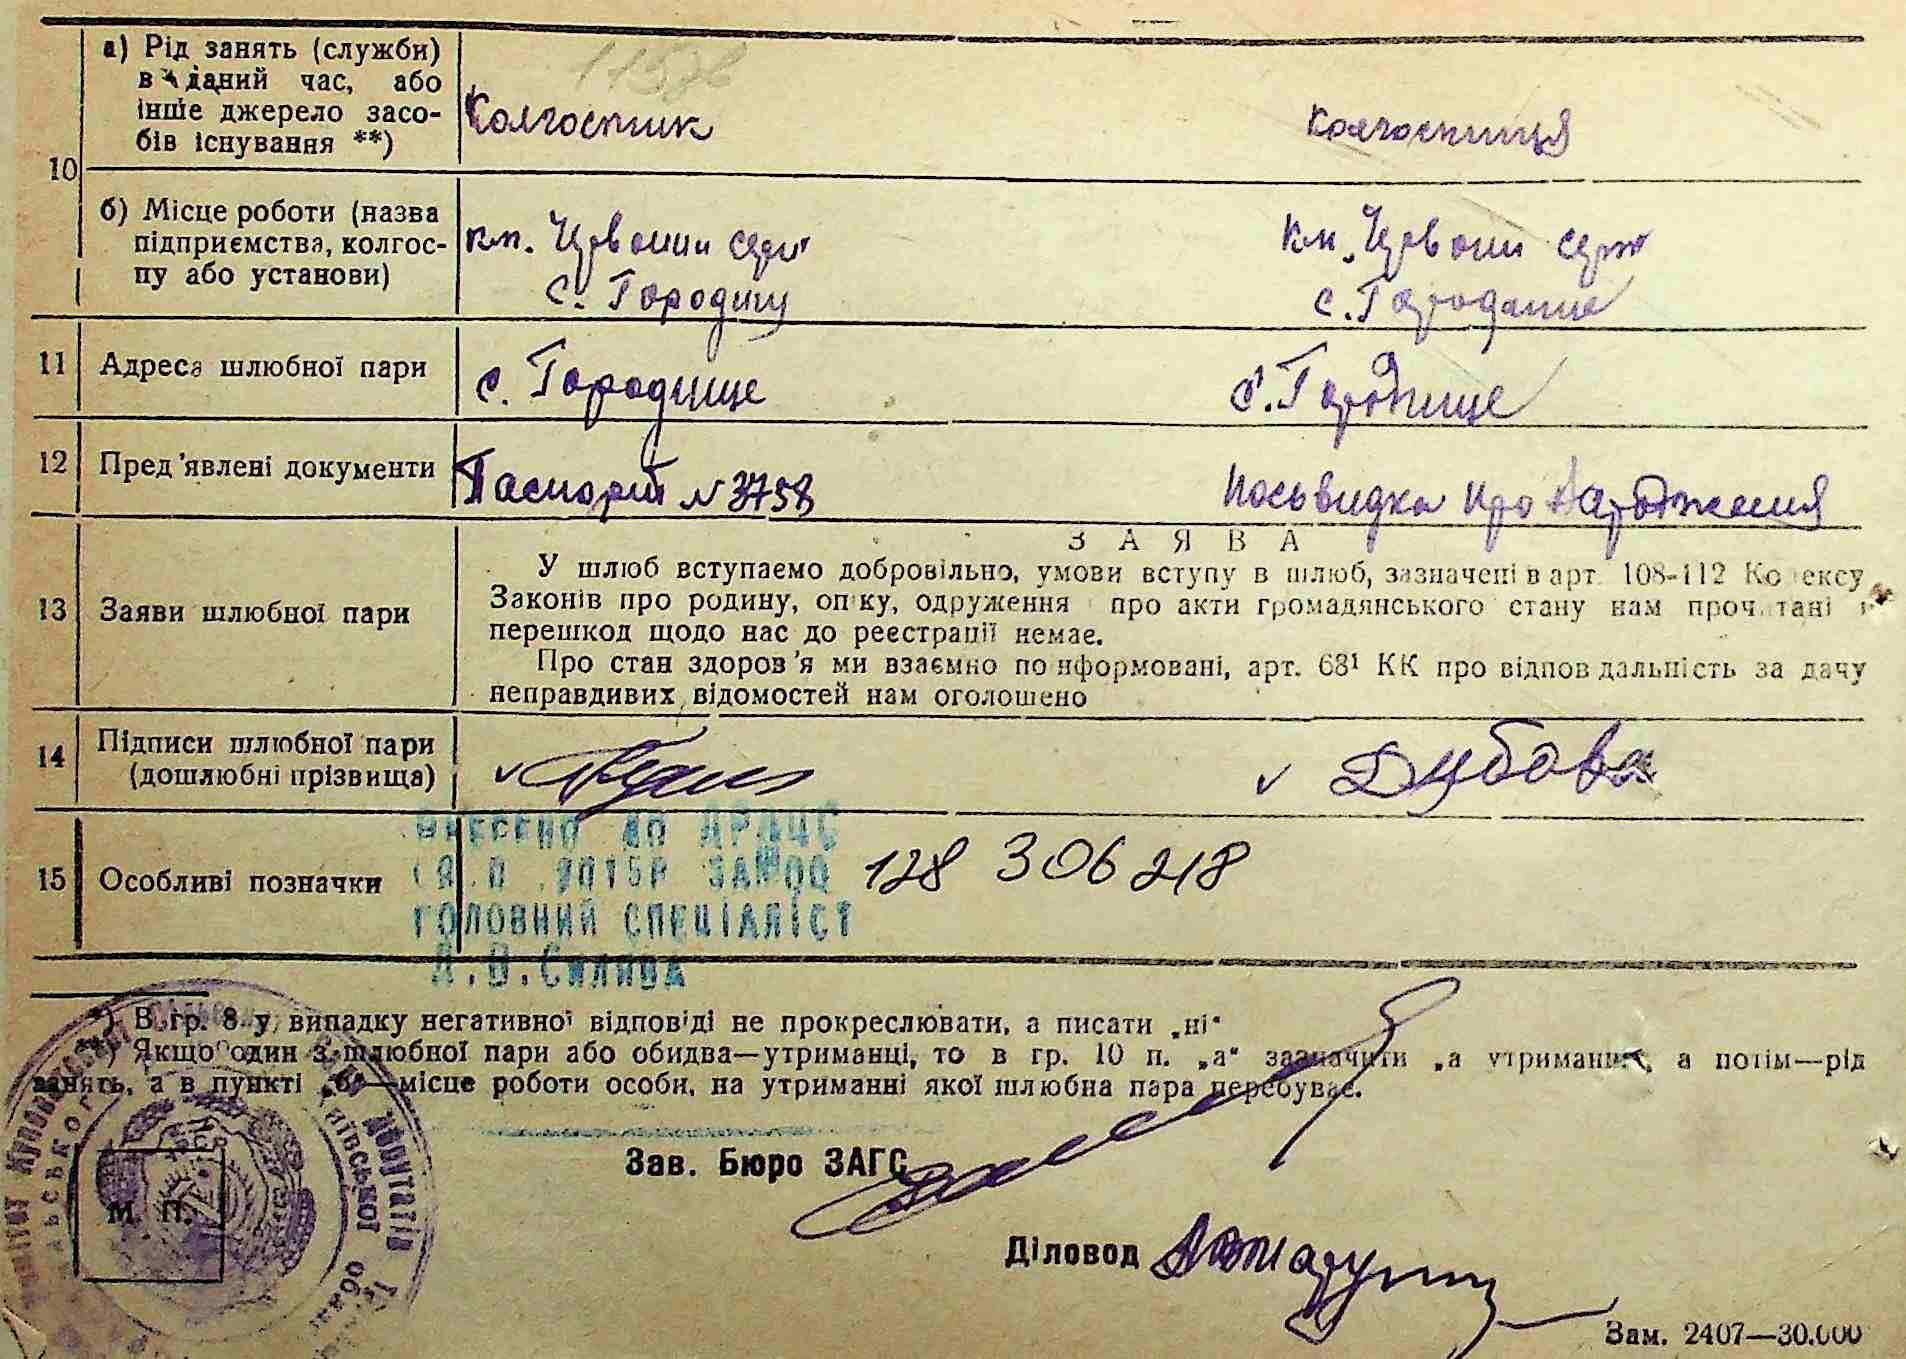 11578
10
а) Рід занять (служби)
в даний час, або
інше джерело засо-
бів існування **)
Колгоспник
колгоспниця
б) Місце роботи (назва
підприємства, колгос-
пу або установи)
с. Городищ
с. Городище
11
Адреса шлюбної пари
с. Городище
с. Городище
12
Пред'явлені документи
Паспорт № 3758
посьвидка про народження
13
Заяви шлюбної пари
ЗАЯВА
У шлюб вступаємо добровільно, умови вступу в шлюб, зазначені в арт. 108-112 Кодексу
Законів про родину, опіку, одруження про акти громадянського стану нам прочитані і
перешкод щодо нас до реєстрації немає.
Про стан здоров'я ми взаємно поінформовані, арт. 68¹ КК про відповідальність за дачу
неправдивих відомостей нам оголошено
14
Підписи шлюбної пари
(дошлюбні прізвища)
Дубова
15
Особливі позначки
ВНЕСЕНО ДО ДРАЦС
ГОЛОВНИЙ СПЕЦІАЛІСТ
128 306 218
*) В гр. 8 у випадку негативної відповіді не прокреслювати, а писати „ні“
**) Якщо один з шлюбної пари або обидва—утриманці, то в гр. 10 п. „а“ зазначити „а утриманні“, а потім—рід
занять, а в пункті „б“—місце роботи особи, на утриманні якої шлюбна пара перебуває.
М. П.
Зав. Бюро ЗАГС
Діловод
Зам. 2407—30.000